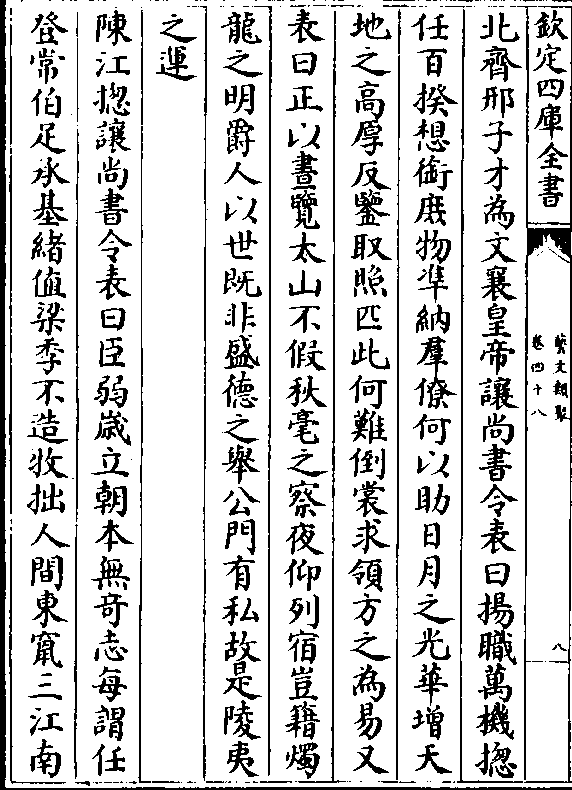 欽定四庫全書
藝文類聚
卷四十八
八
北齊邢子才為文襄皇帝讓尚書令表曰揚職萬機揔
任百揆想銜庶物準納羣僚何以助日月之光華增天
地之高厚反鑒取照匹此何難倒裳求領方之為易又
表曰正以晝覽太山不假秋毫之察夜仰列宿豈籍燭
龍之明爵人以世既非盛德之舉公門有私故是陵夷
之運
陳江揔讓尚書令表曰臣弱歳立朝本無奇志每謂任
登常伯足承基緒值梁季不造牧拙人間東竄三江南